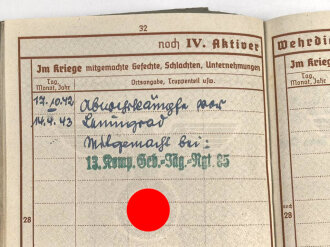 32
noch IV. Aktiver
Wehrdie
Im Kriege mitgemachte Gefechte, Schlachten, Unternehmungen
Im Kriege
Tag, Monat, Jahr
Ortsangabe, Truppenteil usw.
Tag, Monat, Jahr
17.10.42 Abwehrkämpfe vor
14.4.43 Leningrad
Mitgemacht bei:
13. Komp. Geb.-Jäg.-Rgt. 85
28
noch
28